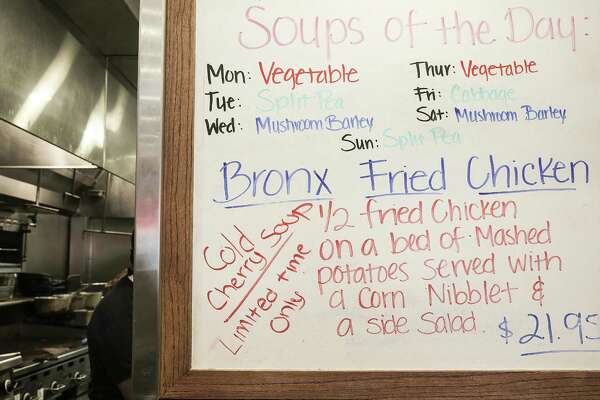 Soups of the Day:
Mon: Vegetable
Tue: Split Pea
Wed: Mushroom Barley
Thur: Vegetable
Fri: Cabbage
Sat: Mushroom Barley
Sun: Split Pea
Bronx Fried Chicken
Cold
Cherry Soup
Limited time
Only
1/2 fried Chicken
on a bed of Mashed
potatoes served with
a Corn Nibblet &
a side Salad. $21.95